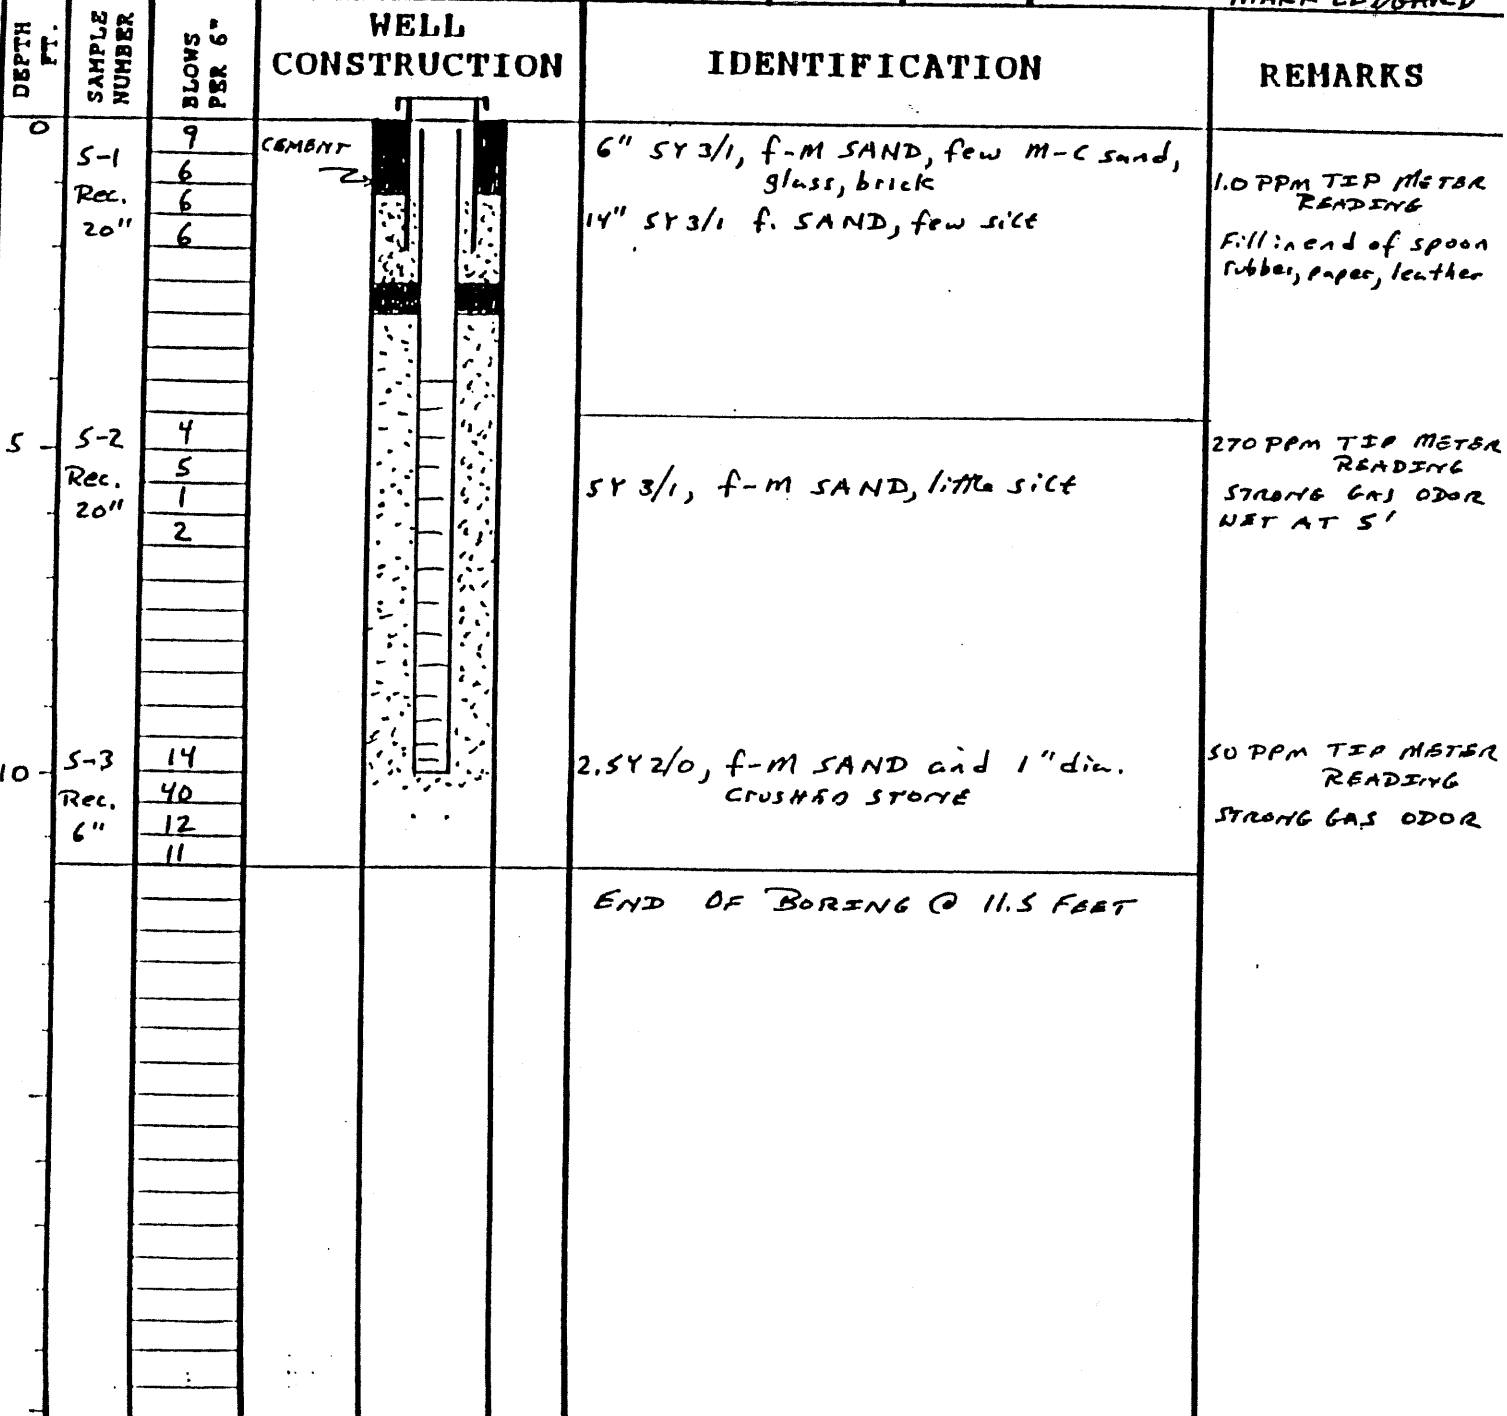 DEPTH FT.
SAMPLE NUMBER
BLOWS PER 6"
WELL CONSTRUCTION
IDENTIFICATION
REMARKS
0
S-1
Rec.
20"
9
6
6
6
CEMENT
6" 5Y 3/1, f-M SAND, few M-C sand,
glass, brick
14" 5Y 3/1 f. SAND, few silt
1.0 PPM TIP METER
READING
Fill in end of spoon
rubber, paper, leather
5
S-2
Rec.
20"
4
5
1
2
5Y 3/1, f-M SAND, little silt
270 PPM TIP METER
READING
STRONG GAS ODOR
WET AT 5'
10
S-3
Rec.
6"
14
40
12
11
2.5Y 2/0, f-M SAND and 1" dia.
CRUSHED STONE
50 PPM TIP METER
READING
STRONG GAS ODOR
END OF BORING @ 11.5 FEET